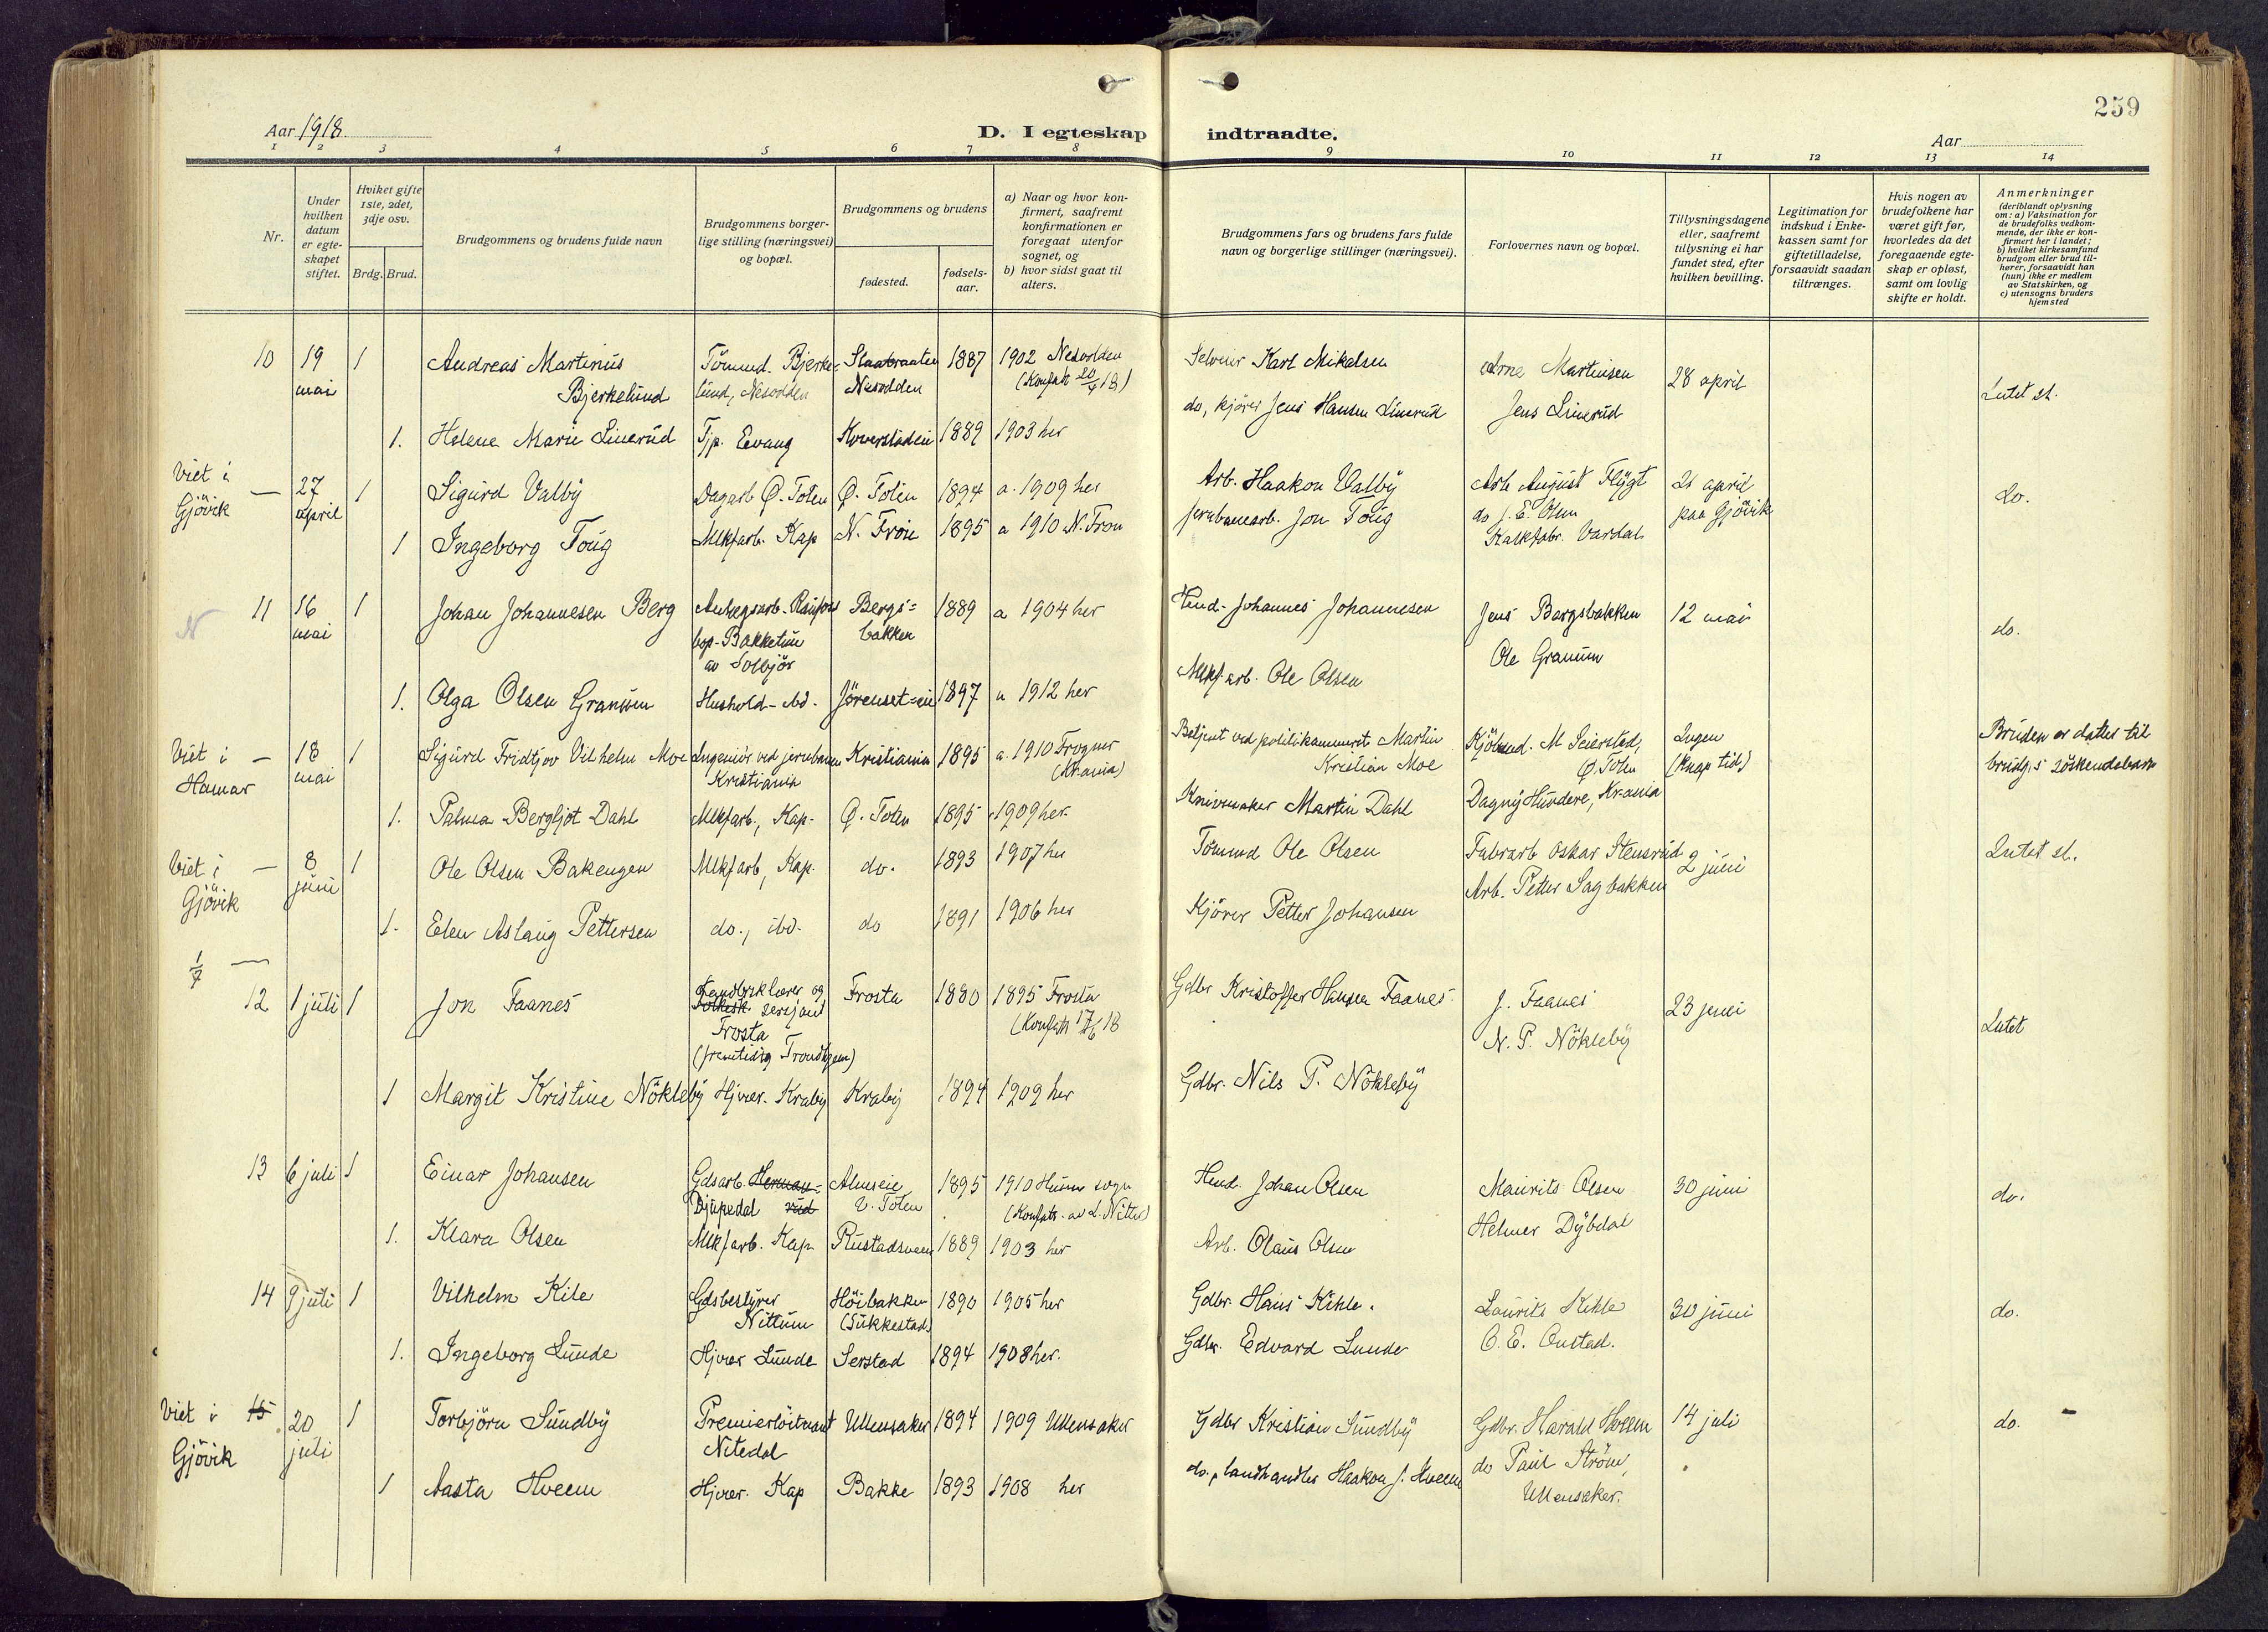 259
Aar 1918
D. I egteskap indtraadte.
Aar
1 2 3 4 5 6 7 8 9 10 11 12 13 14
Nr.
Under hvilken datum er egte-skapet stiftet.
Hvilket gifte 1ste, 2det, 3dje osv.
Brdg. Brud.
Brudgommens og brudens fulde navn
Brudgommens borger-lige stilling (næringsvei) og bopæl.
Brudgommens og brudens
fødested.
fødsels-aar.
a) Naar og hvor kon-firmert, saafremt konfirmationen er foregaat utenfor sognet, og
b) hvor sidst gaat til alters.
Brudgommens fars og brudens fars fulde navn og borgerlige stillinger (næringsvei).
Forlovernes navn og bopæl.
Tillysningsdagene eller, saafremt tillysning ei har fundet sted, efter hvilken bevilling.
Legitimation for indskud i Enke-kassen samt for giftetilladelse, forsaavidt saadan tiltrænges.
Hvis nogen av brudefolkene har været gift før, hvorledes da det foregaaende egte-skap er opløst, samt om lovlig skifte er holdt.
Anmerkninger (deriblandt oplysning om: a) Vaksination for de brudefolks vedkom-mende, der ikke er kon-firmert her i landet; b) hvilket kirkesamfund brudgom eller brud til-hører, forsaavidt han (hun) ikke er medlem av Statskirken, og c) utensogns bruders hjemsted
10 19 mai 1 Andreas Martinus Bjerkelund Tömmd. Bjerke-lund, Nesodden Nesodden 1887 1902 Nesodden (Konfatt 20/4 18) Selveier Karl Mikalsen Arne Martinsen 28 april Lutet st.
1. Helene Marie Linerud Tjp. Evang Koverstadeie 1889 1903 her do, kjörer Jens Hansen Linerud Jens Linerud
Viet i Gjövik — 27 april 1 Sigurd Valby Dagarb Ø. Toten Ø. Toten 1894 a. 1909 her Arb. Haakon Valby Arb August Flygt 21 april paa Gjövik do.
1 Ingeborg Toug Mlkfarb. Kap N. Fron 1895 a 1910 N. Fron jernbanearb. Jon Toug do J. E. Olsen Kalkfabr. Vardal
N 11 16 mai 1 Johan Johannesen Berg Anlegsarb. Raufoss bop. Bakketun av Solbjör Bergs-bakken 1889 a 1904 her Hmd. Johannes Johannesen Jens Bergsbakken 12 mai do.
1. Olga Olsen Granum Hushold- ibd. Jörenset-eie 1897 a 1912 her Mlkf arb. Ole Olsen Ole Granum
Viet i Hamar — 18 mai 1 Sigurd Fridtjov Vilhelm Moe Ingeniör ved jernbanen Kristiania Kristiania 1895 a. 1910 Frogner (Kr.ania) Betjent ved politikammeret Martin Kristian Moe Kjöbmd. M Seierstad, Ø. Toten Ingen (knap tid) Bruden er datter til brudg.s söskendebarn
1. Palma Bergljot Dahl Mlkfarb., Kap. Ø. Toten 1895 1909 her. Knivmaker Martin Dahl Dagny Hundere, Kr.ania
Viet i Gjövik — 8 juni 1 Ole Olsen Bakengen Mlkfarb, Kap. do. 1893 1907 her Tömmd Ole Olsen Fabrarb Oskar Stensrud 2 juni Lutet st.
1. Elen Aslaug Pettersen do., ibd. do 1891 1906 her Kjörer Petter Johansen Arb. Petter Sagbakken
1/7 —
12 1 juli 1 Jon Faanes Landbrklærer og sersjant Frosta (fremtidig Trondhjem) Frosta 1880 1895 Frosta (Konfatt 17/6 18 Gdbr Kristoffer Hansen Faanes J. Faanes 23 juni Lutet
1 Margit Kristine Nökleby Hjvær. Kraby Kraby 1894 1909 her Gdbr. Nils P. Nökleby N. P. Nökleby
13 6 juli 1 Einar Johansen Gdsarb. Herman-rud Djupedal Almseie V. Toten 1895 1910 Hunn sogn (Konfatt. av L. Nitter) Hmd. Johan Olsen Maurits Olsen 30 juni do.
1. Klara Olsen Mlkfarb. Kap Rustadsveen 1889 1903 her Arb. Olaus Olsen Helmer Dybdal
14 9 juli 1 Vilhelm Kile Gdsbestyrer Nittum Höibakken (Sukkestad) 1890 1905 her Gdbr. Hans Kihle. Laurits Kihle 30 juni do.
1. Ingeborg Lunde Hjvær Lunde Serstad 1894 1908 her. Gdbr. Edvard Lunde O. E. Onstad.
Viet i Gjövik 15 20 juli 1 Torbjörn Sundby Premierlöitnant Nitedal Ullensaker 1894 1909 Ullensaker Gdbr Kristian Sundby Gdbr. Harald Hveem 14 juli do. –
1 Aasta Hveem Hjvær. Kap Bakke 1893 1908 her do., landhandler Haakon J. Hveem do Paul Ström, Ullensaker.